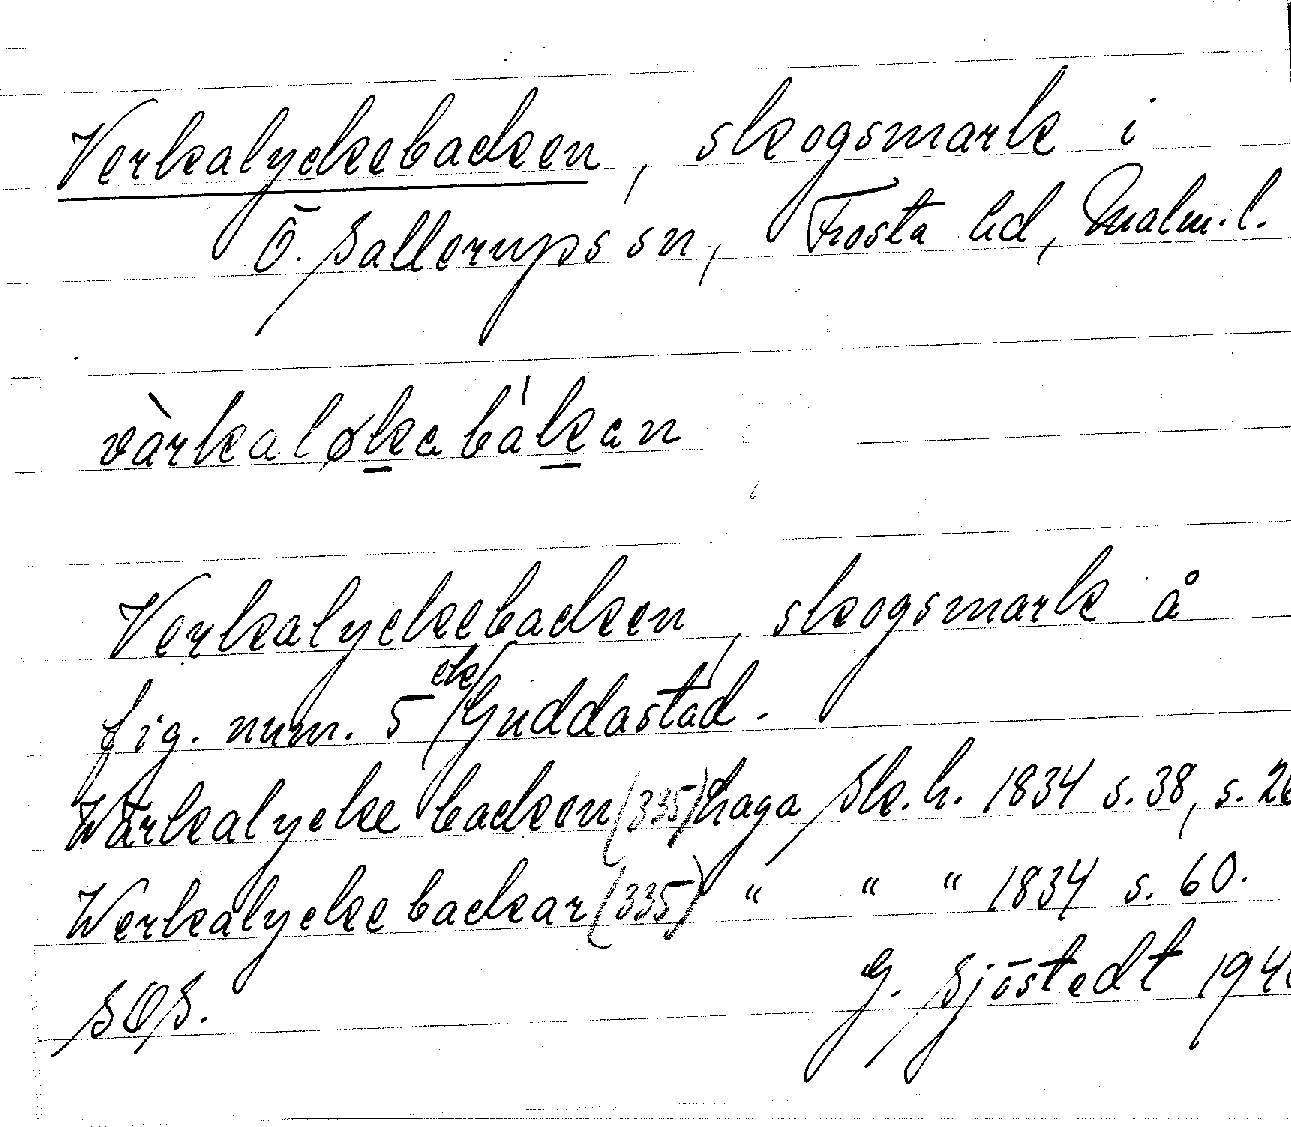 Verkalyckebacken, skogsmark i
Ö. Sallerups sn, Frosta hd, Malm. l.
vàrkaløkabákan
Verkalyckebacken, skogsmark å
fig. num. 5 ek/Guddastad.
Wärkalycke backen (335) haga Sk. h. 1834 s. 38, s. 26
Werkalycke backar (335) " " " 1834 s. 60.
SOS. G. Sjöstedt 194